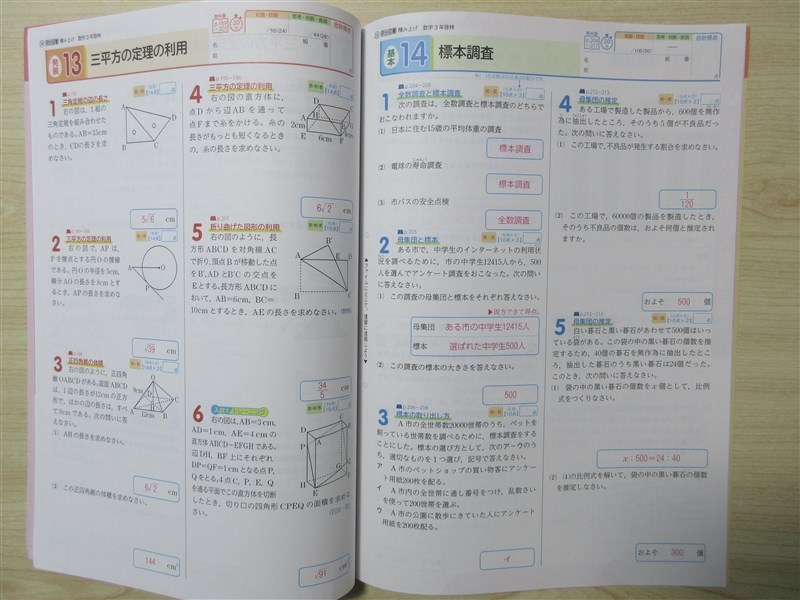 発展
13 三平方の定理の利用
名
前
1 三角定規の辺の長さ
右の図は，1組の
三角定規を組み合わせた
ものである。AB=15cm
のとき，CDの長さを求
めなさい。
A
D
B
C
5√6 cm
2 三平方の定理の利用
右の図で，APは，
Pを接点とする円Oの接線
である。円Oの半径を5cm，
線分AOの長さを8cmとす
るとき，APの長さを求め
なさい。
P
A
O
√39 cm
3 正四角錐の体積
右の図のように，正四角
錐OABCDがある。底面ABCD
は，1辺の長さが12cmの正方
形で，ほかの辺の長さは，すべ
て9cmである。次の問いに答
えなさい。
(1) AHの長さを求めなさい。
12cm
6√2 cm
(2) この正四角錐の体積を求めなさい。
144 cm³
4 三平方の定理の利用
右の図の直方体に，
点Dから辺ABを通って
点Fまで糸をかける。糸の
長さがもっとも短くなるとき
の，糸の長さを求めなさい。
2cm
6cm
4cm
6√2 cm
5 折り曲げた図形の利用
右の図のように，長
方形ABCDを対角線AC
で折り，頂点Bが移動した点
をB'，ADとB'Cの交点を
Eとする。長方形ABCDに
おいて，AB=6cm，BC=
10cmとするとき，AEの長さを求めなさい。
34/5 cm
6
右の図は，AB=3cm，
AD=1cm，AE=4cmの
直方体ABCD-EFGHである。
辺DH，BF上にそれぞれ
DP=QF=1cmとなる点P，
Qをとる。4点C，P，E，Q
を通る平面でこの直方体を切断
したとき，切り口の四角形CPEQの面積を求めな
さい。
√91 cm²
基本
14 標本調査
組
番
名
前
1 全数調査と標本調査
次の調査は，全数調査と標本調査のどちらで
おこなわれますか。
(1) 日本に住む15歳の平均体重の調査
標本調査
(2) 電球の寿命調査
標本調査
(3) 市バスの安全点検
全数調査
2 母集団と標本
ある市で，中学生のインターネットの利用状
況を調べるために，市の中学生12415人から，500
人を選んでアンケート調査をおこなった。次の問い
に答えなさい。
(1) この調査の母集団と標本をそれぞれ答えなさい。
▶両方できて得点。
母集団 ある市の中学生12415人
標本 選ばれた中学生500人
(2) この調査の標本の大きさを答えなさい。
500
3 標本の取り出し方
A市の全世帯数20000世帯のうち，ペットを
飼っている世帯数を調べるために，標本調査をする
ことにした。標本の選び方として，次のア〜ウのう
ち，適切なものを1つ選び，記号で答えなさい。
ア A市のペットショップの買い物客にアンケー
ト用紙200枚を配る。
イ A市内の全世帯に通し番号をつけ，乱数さい
を使って200世帯を選ぶ。
ウ A市の公園に散歩にきていた人にアンケート
用紙を200枚配る。
イ
4 母集団の推定
ある工場で製造した製品から，600個を無作
為に抽出したところ，そのうち5個が不良品だっ
た。次の問いに答えなさい。
(1) この工場で，不良品が発生する割合を求めなさい。
1/120
(2) この工場で，60000個の製品を製造したとき，
そのうち不良品の個数は，およそ何個と推定され
ますか。
およそ 500 個
5 母集団の推定
白い碁石と黒い碁石があわせて500個はいっ
ている袋がある。この袋の中の黒い碁石の個数を推
定するため，40個の碁石を無作為に抽出したとこ
ろ，抽出した碁石のうち黒い碁石は24個だった。
このとき，次の問いに答えなさい。
(1) 袋の中の黒い碁石の個数をx個として，比例
式をつくりなさい。
x：500＝24：40
(2) (1)の比例式を解いて，袋の中の黒い碁石の個数
を推定しなさい。
およそ 300 個